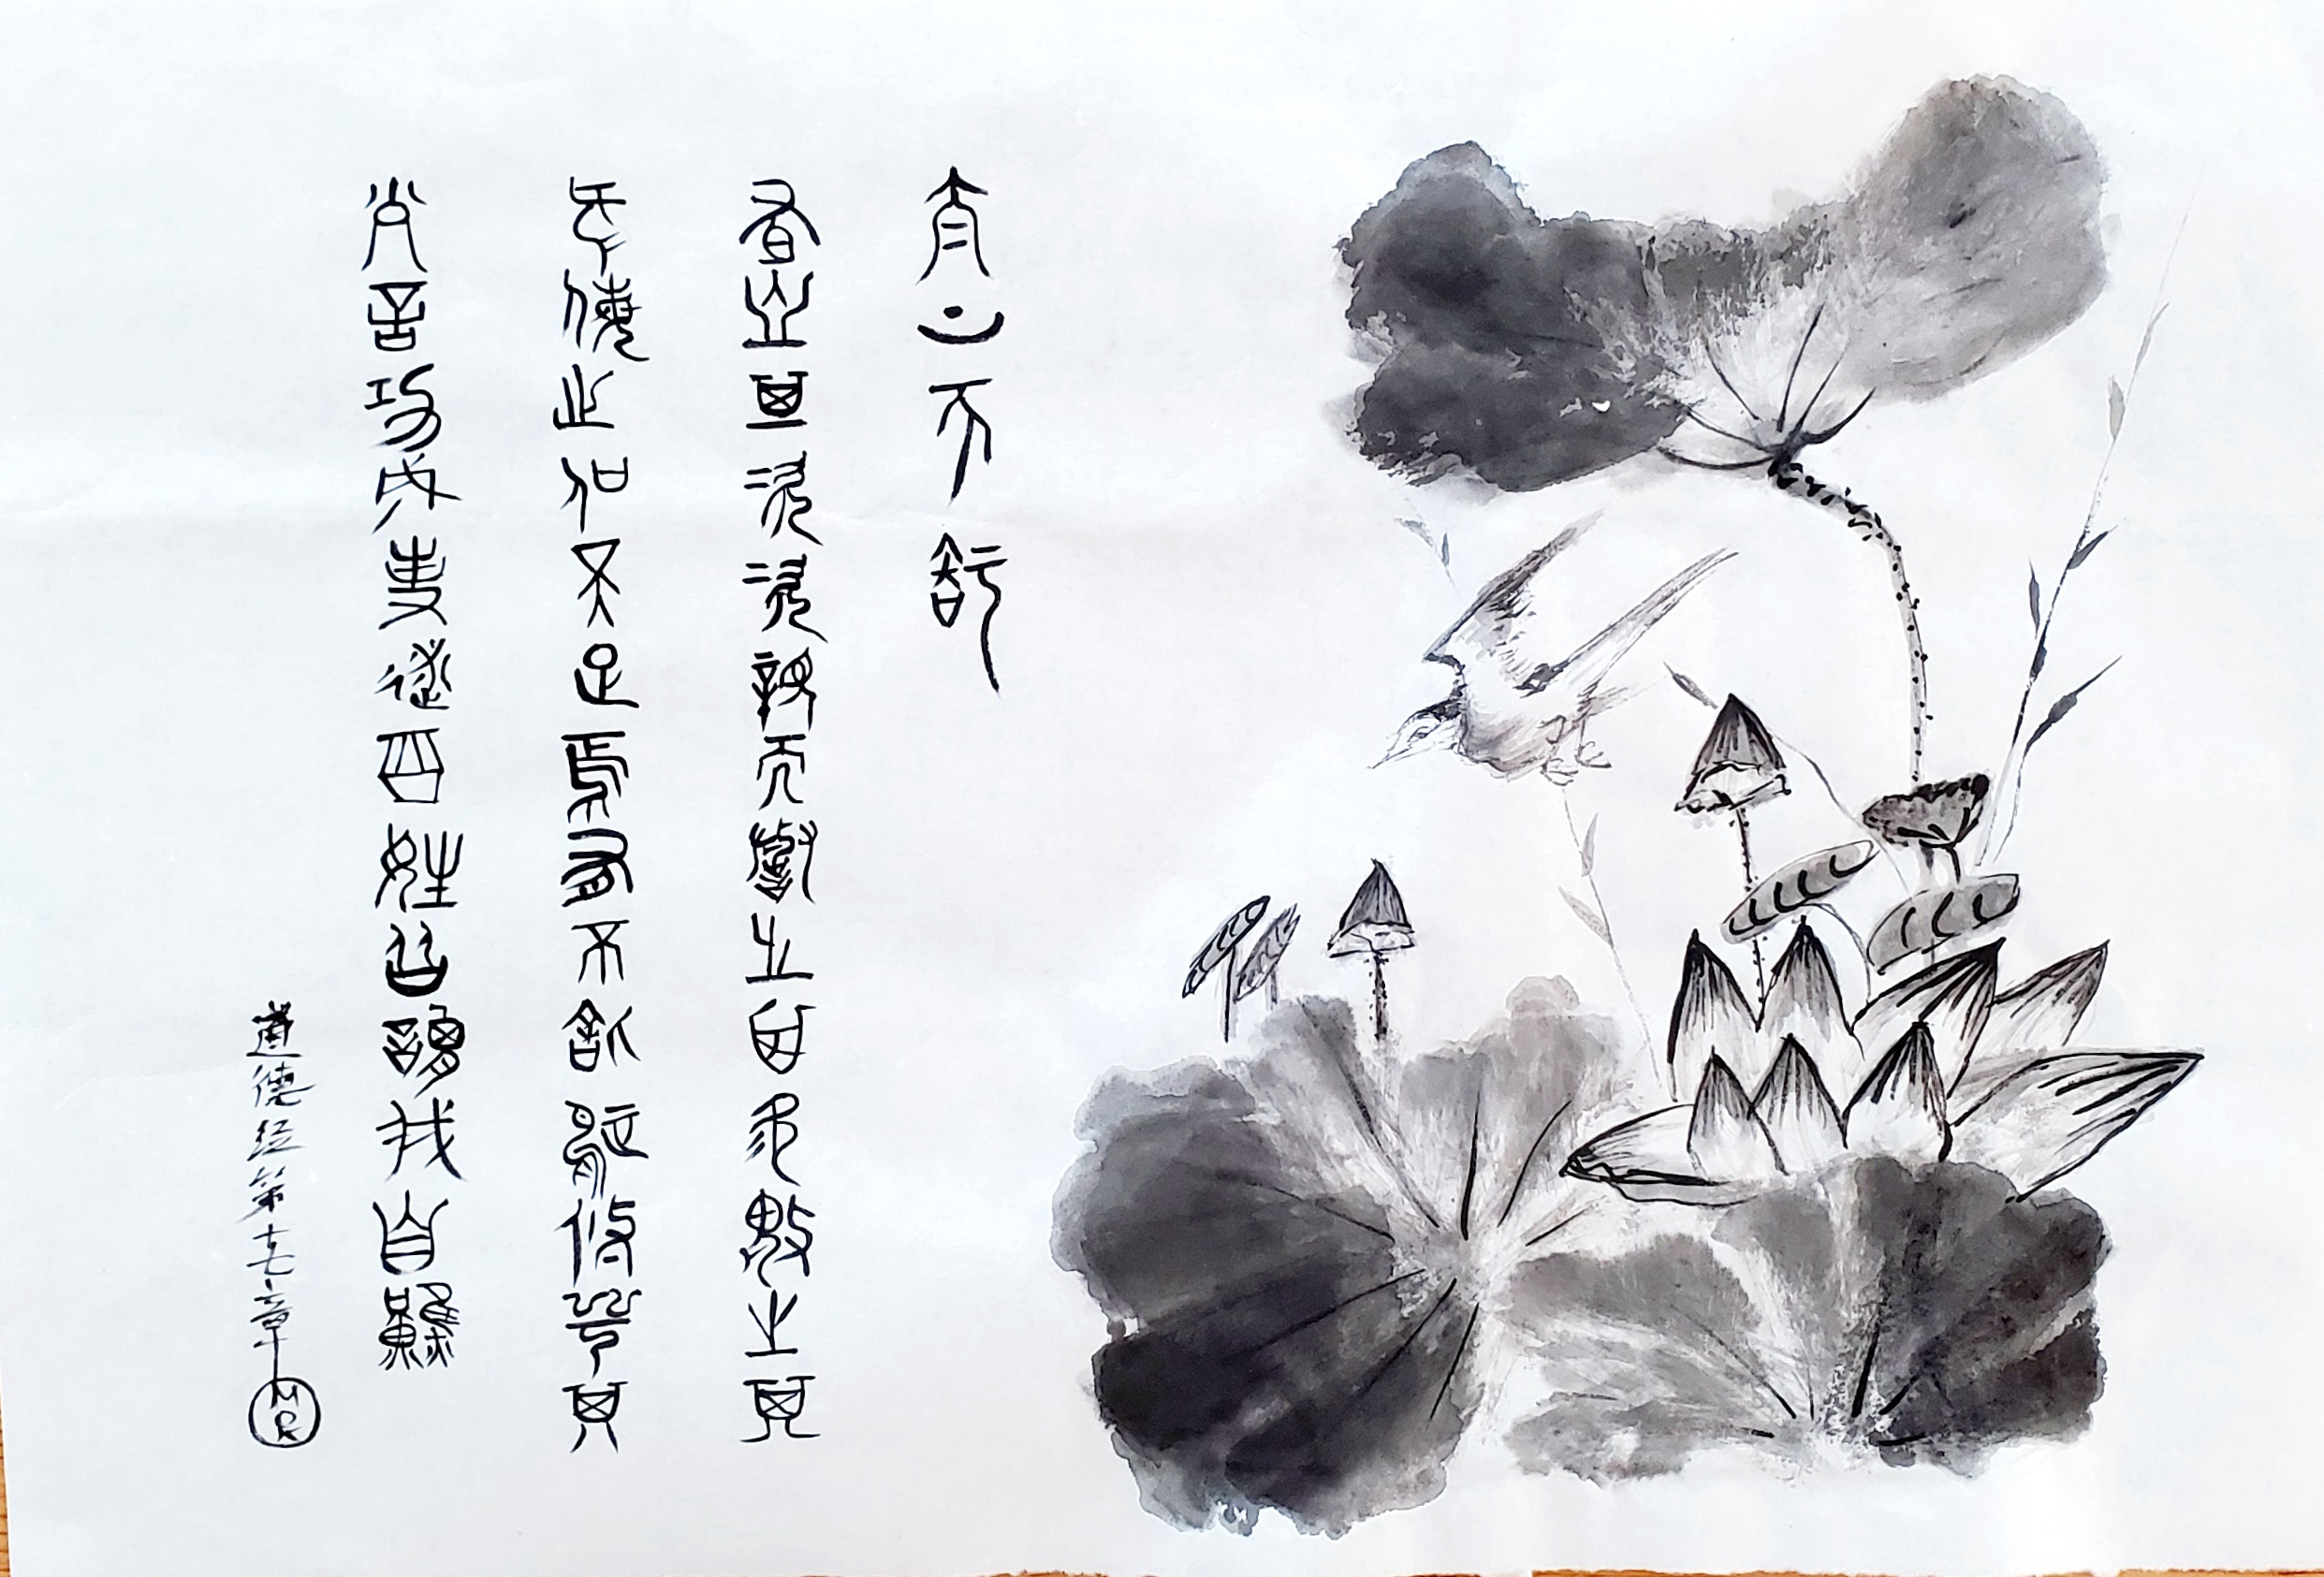 太上不知
有之其次親而譽之其次畏之其
次侮之信不足焉有不信猶悠兮其
言功成事遂百姓皆謂我自然
道德经第十七章
MR